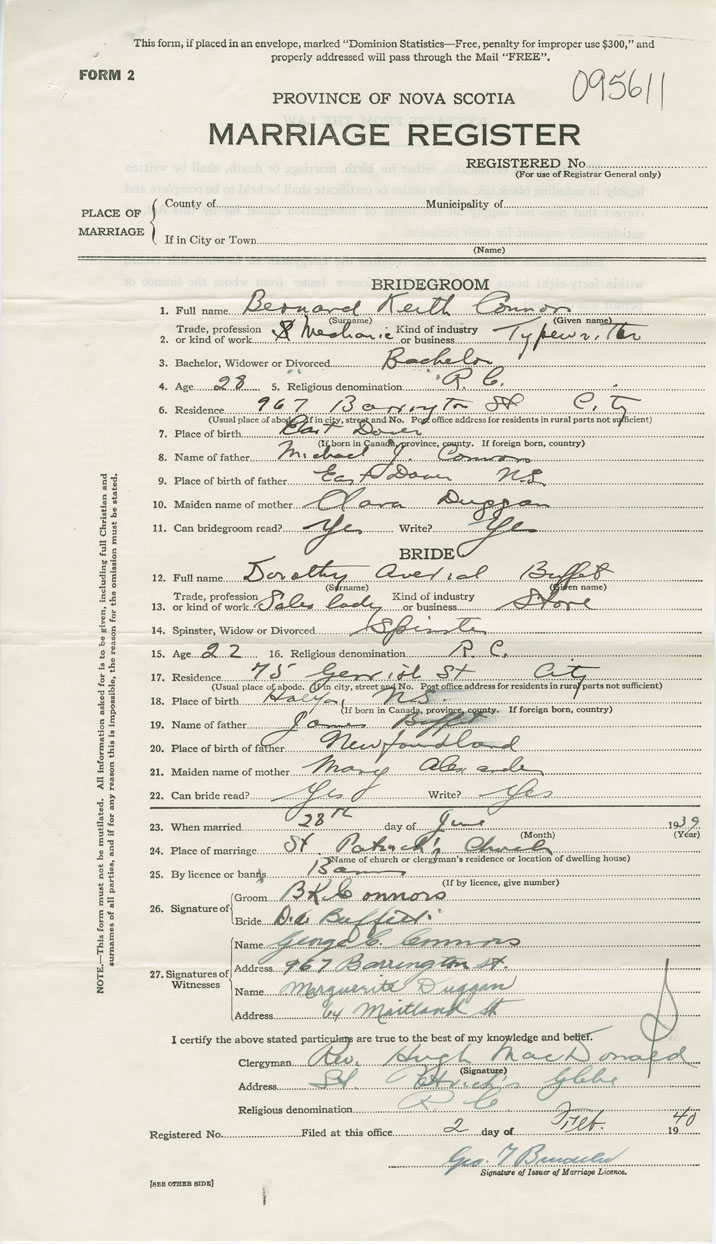 This form, if placed in an envelope, marked “Dominion Statistics—Free, penalty for improper use $300,” and
properly addressed will pass through the Mail “FREE”.
FORM 2
095611
PROVINCE OF NOVA SCOTIA
MARRIAGE REGISTER
REGISTERED No.
(For use of Registrar General only)
PLACE OF MARRIAGE
County of Municipality of
If in City or Town
(Name)
BRIDEGROOM
1. Full name Bernard Keith Connors
(Surname) (Given name)
2. Trade, profession or kind of work Mechanic Kind of industry or business Typewriter
3. Bachelor, Widower or Divorced Bachelor
4. Age 28 5. Religious denomination R. C.
6. Residence 967 Barrington St City
(Usual place of abode. If in city, street and No. Post office address for residents in rural parts not sufficient)
7. Place of birth East Dover
(If born in Canada, province, county. If foreign born, country)
8. Name of father Michael J. Connors
9. Place of birth of father East Dover N.S.
10. Maiden name of mother Clara Duggan
11. Can bridegroom read? Yes Write? Yes
BRIDE
12. Full name Dorothy Buffet
(Surname) (Given name)
13. Trade, profession or kind of work Sales lady Kind of industry or business Store
14. Spinster, Widow or Divorced Spinster
15. Age 22 16. Religious denomination R. C.
17. Residence 75 St City
(Usual place of abode. If in city, street and No. Post office address for residents in rural parts not sufficient)
18. Place of birth Halifax NS
(If born in Canada, province, county. If foreign born, country)
19. Name of father James Buffet
20. Place of birth of father Newfoundland
21. Maiden name of mother Mary Alexander
22. Can bride read? Yes Write? Yes
23. When married 28th day of June 1939
(Month) (Year)
24. Place of marriage St. Patrick's Church
(Name of church or clergyman's residence or location of dwelling house)
25. By licence or banns Banns
(If by licence, give number)
26. Signature of
Groom B K Connors
Bride D.A. Buffett
27. Signatures of Witnesses
Name George C. Connors
Address 967 Barrington St.
Name Marguerite Duggan
Address 64 Maitland St
I certify the above stated particulars are true to the best of my knowledge and belief.
Clergyman Rev. Hugh MacDonald
(Signature)
Address St. Patrick's Glebe
Religious denomination R C
Registered No. Filed at this office 2 day of Feb. 1940
Geo. T
Signature of Issuer of Marriage Licence.
[SEE OTHER SIDE]
NOTE.—This form must not be mutilated. All information asked for is to be given, including full Christian and
surnames of all parties, and if for any reason this is impossible, the reason for the omission must be stated.